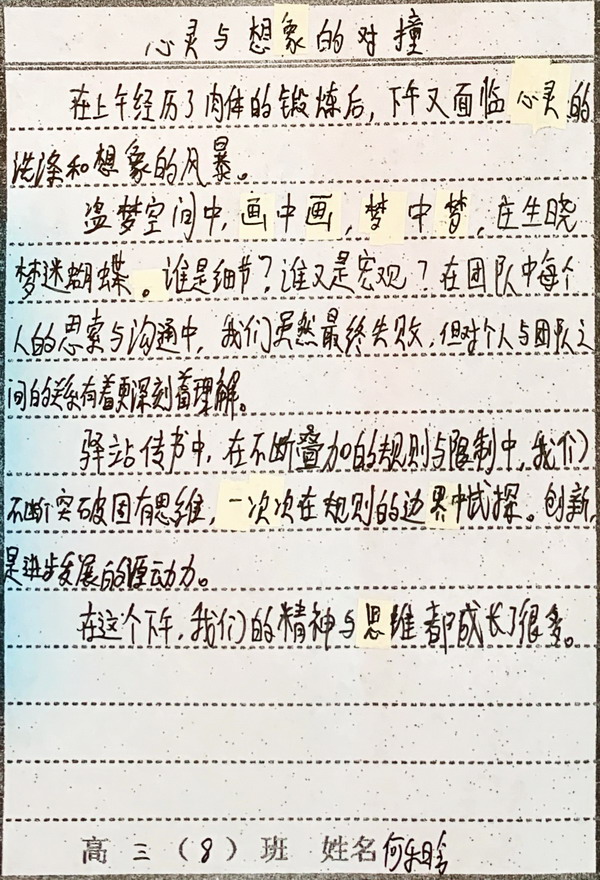 心灵与想象的对撞
在上午经历了肉体的锻炼后，下午又面临心灵的
洗涤和想象的风暴。
盗梦空间中，画中画，梦中梦，庄生晓
梦迷蝴蝶。谁是细节？谁又是宏观？在团队中每个
人的思索与沟通中，我们虽然最终失败，但对个人与团队之
间的关系有着更深刻着理解。
驿站传书中，在不断叠加的规则与限制中，我们
不断突破固有思维，一次次在规则的边界中试探。创新，
是进步发展的源动力。
在这个下午，我们的精神与思维都成长了很多。
高三（8）班 姓名何乐晗